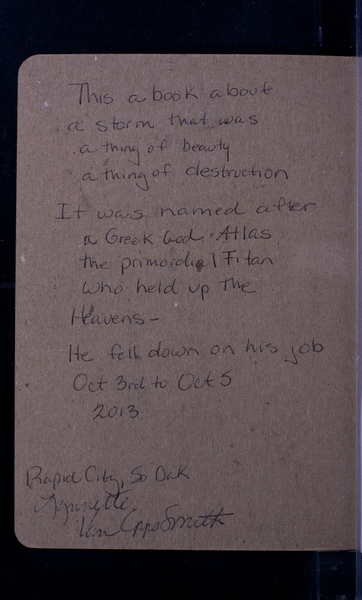 This a book about
a storm that was
a thing of beauty
a thing of destruction
It was named after
a Greek God - Atlas
the primordial Titan
who held up the
Heavens -
He fell down on his job
Oct 3rd to Oct 5
2013
Rapid City, So Dak
Annette
Van Epps Smith